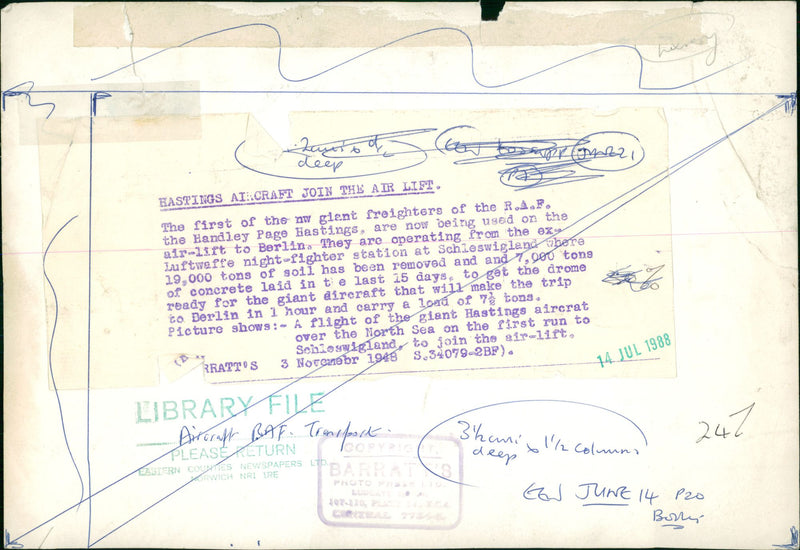 deep
JUNE 21
HASTINGS AIRCRAFT JOIN THE AIR LIFT.
The first of the nw giant freighters of the R.A.F.
the Handley Page Hastings, are now being used on the
air-lift to Berlin. They are operating from the ex-
Luftwaffe night-fighter station at Schleswigland where
19,000 tons of soil has been removed and and 7,000 tons
of concrete laid in the last 15 days, to get the drome
ready for the giant aircraft that will make the trip
to Berlin in 1 hour and carry a load of 7½ tons.
Picture shows:- A flight of the giant Hastings aircrat
over the North Sea on the first run to
Schleswigland, to join the air-lift.
RRATT'S 3 Novemebr 1948 S.34079-2BF).
14 JUL 1988
LIBRARY FILE
Aircraft RAF. Transport.
PLEASE RETURN
EASTERN COUNTIES NEWSPAPERS LTD
NORWICH NR1 1RE
COPYRIGHT.
BARRATT'S
PHOTO PRESS LTD.
CENTRAL
3½ ems x 1½ columns
deep
247
EEN JUNE 14 P20